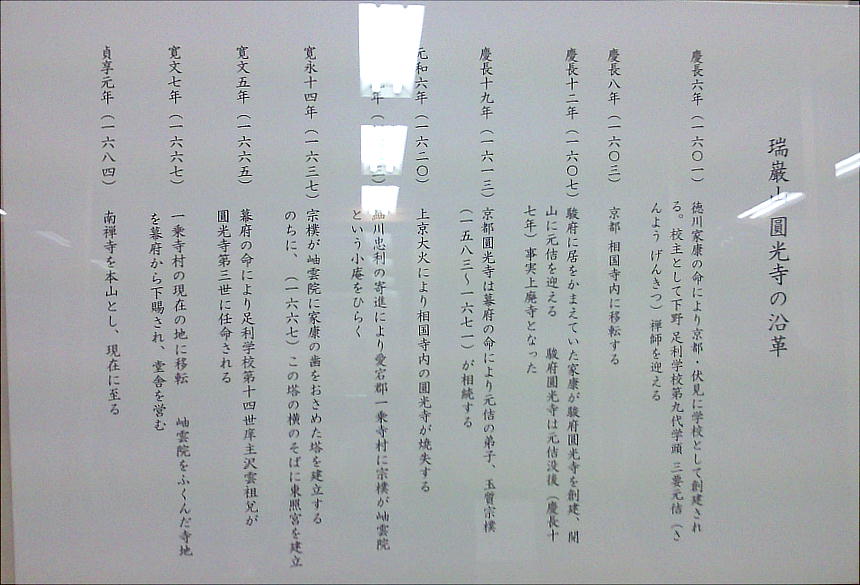 瑞巌山圓光寺の沿革
慶長六年(一六〇一) 徳川家康の命により京都・伏見に学校として創建され
る。校主として下野 足利学校第九代学頭 三要元佶(さ
んよう げんきつ)禅師を迎える
慶長八年(一六〇三) 京都 相国寺内に移転する
慶長十二年(一六〇七) 駿府に居をかまえていた家康が駿府圓光寺を創建、開
山に元佶を迎える 駿府圓光寺は元佶没後(慶長十
七年)事実上廃寺となった
慶長十九年(一六一三) 京都圓光寺は幕府の命により元佶の弟子、玉質宗樸
(一五八三〜一六七一)が相続する
元和六年(一六二〇) 上京大火により相国寺内の圓光寺が焼失する
年( 三) 細川忠利の寄進により愛宕郡一乗寺村に宗樸が岫雲院
という小庵をひらく
寛永十四年(一六三七) 宗樸が岫雲院に家康の歯をおさめた塔を建立する
のちに、(一六六七)この塔の横のそばに東照宮を建立
寛文五年(一六六五) 幕府の命により足利学校第十四世庠主沢雲祖兌が
圓光寺第三世に任命される
寛文七年(一六六七) 一乗寺村の現在の地に移転 岫雲院をふくんだ寺地
を幕府から下賜され、堂舎を営む
貞享元年(一六八四) 南禅寺を本山とし、現在に至る